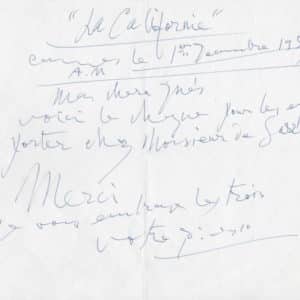 "La Californie"
Cannes le 1er Decembre 195
A.M
Mon cher
voici le chèque pour les
porter chez Monsieur de
Merci
je vous embrasse les trois
votre